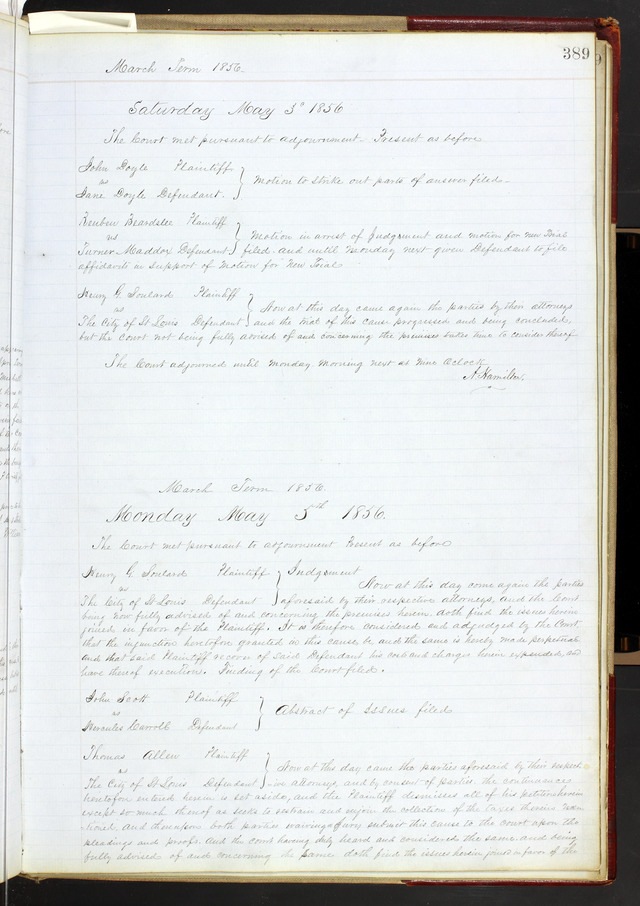 389
March Term 1856.
Saturday May 3d 1856
The Court met pursuant to adjournment. Present as before
John Doyle Plaintiff
vs
Jane Doyle Defendant.
Motion to strike out parts of answer filed.
Reuben Beardslee Plaintiff
vs
Motion in arrest of Judgement and motion for New Trial
Turner Maddox Defendant filed and until Monday next given Defendant to file
affidavits in support of Motion for New Trial
Henry G. Soulard Plaintiff
vs
Now at this day came again the parties by their attorneys
The City of St Louis Defendant and the trial of this cause progressed and being concluded,
but the Court not being fully advised of and concerning the premises takes time to consider thereof
The Court adjourned until Monday Morning next at Nine OClock
A. Hamilton.
March Term 1856.
Monday May 5th 1856.
The Court met pursuant to adjournment Present as before
Henry G. Soulard Plaintiff Judgement
vs
Now at this day come again the parties
The City of St Louis Defendant aforesaid by their respective attorneys, and the Court
being now fully advised of and concerning the premises herein. doth find the issues herein
joined in favor of the Plaintiff. It is therefore considered and adjudged by the Court
that the injunction heretofore granted in this cause be and the same is hereby made perpetual
and that said Plaintiff recover of said Defendant his costs and charges herein expended, and
have thereof execution. Finding of the Court filed.
John Scott Plaintiff
vs
Hercules Carroll Defendant
Abstract of Issues filed
Thomas Allen Plaintiff
vs
Now at this day came the parties aforesaid by their respect-
The City of St Louis Defendant -ive attorneys, and by consent of parties the continuance
heretofore entered herein is set aside, and the Plaintiff dismisses all of his petition herein
except so much thereof as seeks to restrain and enjoin the collection of the taxes therein men-
tioned. And thereupon both parties waiving Jury submit this cause to the Court upon the
pleadings and proofs. And the Court having duly heard and considered the same and being
fully advised of and concerning the same doth find the issues herein joined in favor of the